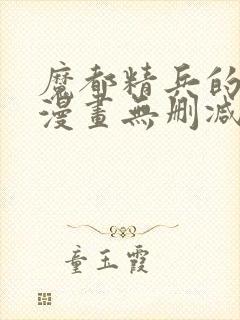 魔都精兵的
漫畫無刪減
童玉霞